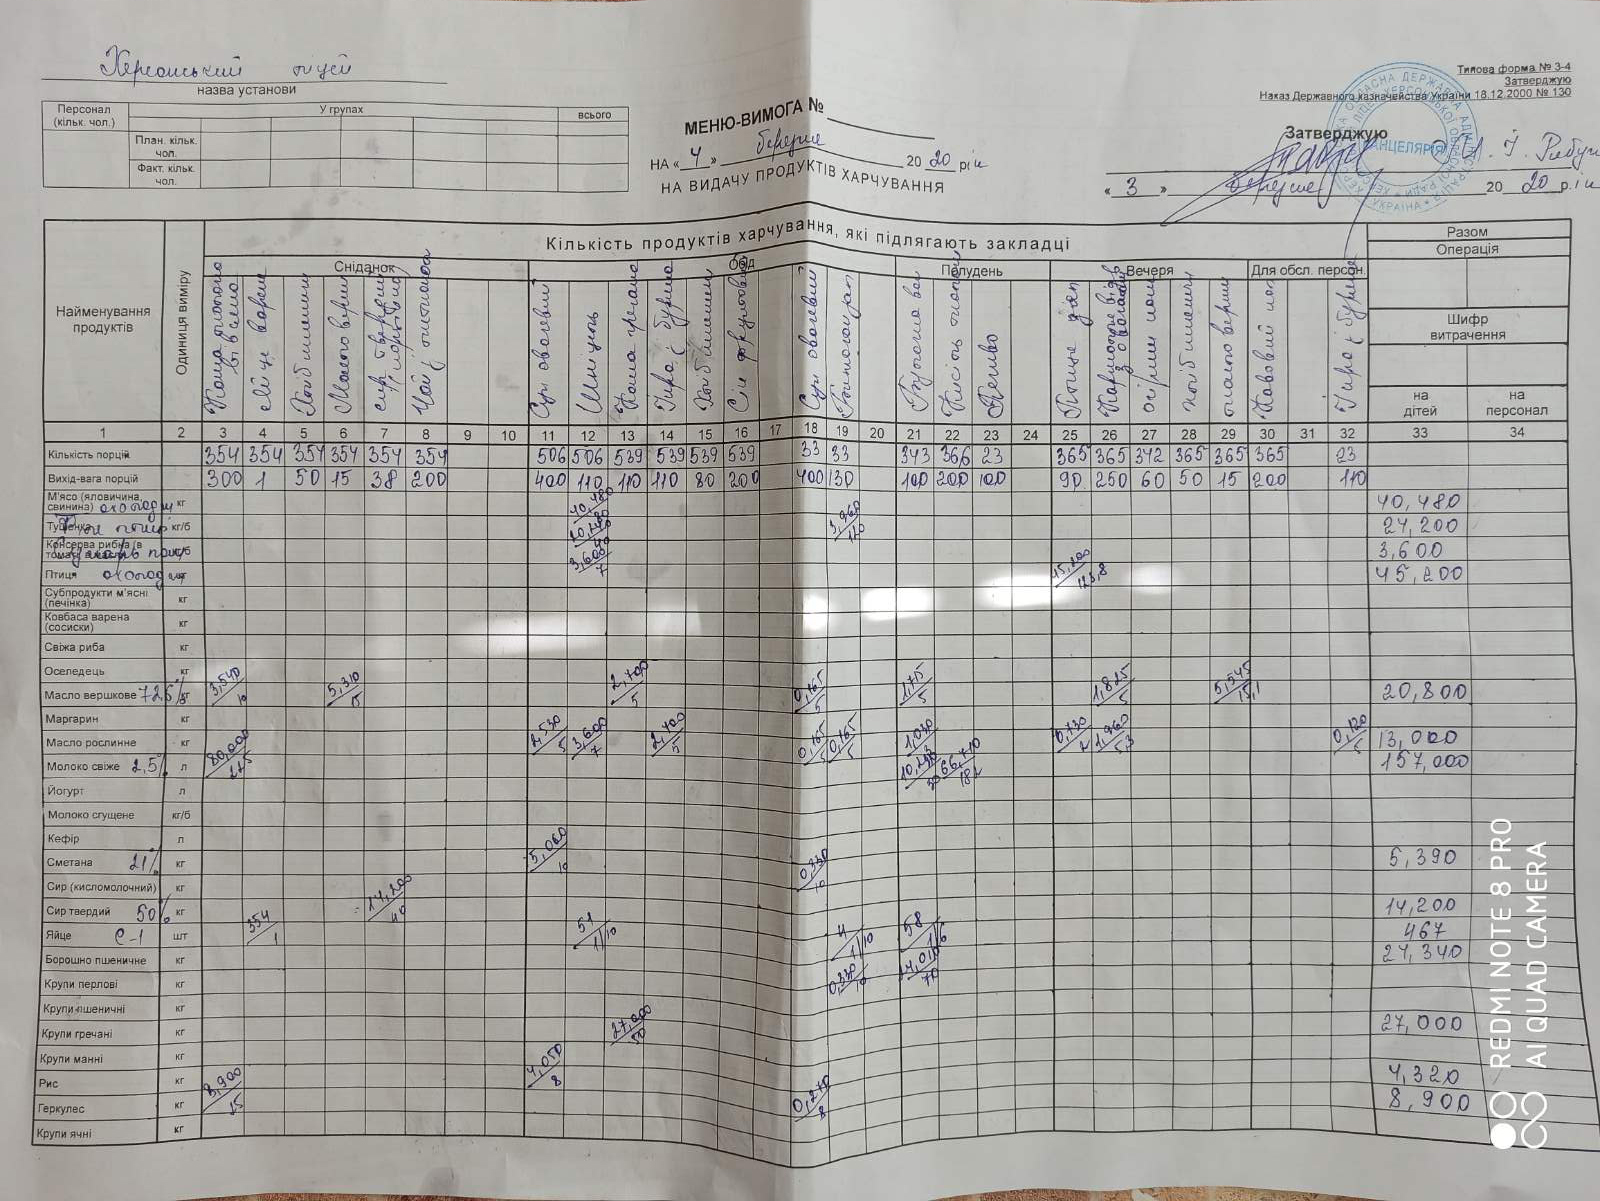 Херсонський ліцей
назва установи
Типова форма № 3-4
Затверджую
Наказ Державного казначейства України 18.12.2000 № 130
Персонал (кільк. чол.) У групах всього
План. кільк. чол.
Факт. кільк. чол.
МЕНЮ-ВИМОГА №
НА « 4 » березня 20 20 рік
НА ВИДАЧУ ПРОДУКТІВ ХАРЧУВАННЯ
Затверджую
КАНЦЕЛЯРІЯ
« 3 » березня 20 20 рік
Найменування продуктів
Одиниця виміру
Кількість продуктів харчування, які підлягають закладці
Разом
Операція
Шифр витрачення
на дітей на персонал
Сніданок Обід Полудень Вечеря Для обсл. персон.
Яйце варене Хліб пшеничний Масло вершк Сир твердий Чай з лимоном
Суп овочевий Шніцель Каша гречана Хліб пшеничний
Суп овочевий
Печиво
Хліб пшеничний
1 2 3 4 5 6 7 8 9 10 11 12 13 14 15 16 17 18 19 20 21 22 23 24 25 26 27 28 29 30 31 32 33 34
Кількість порцій 354 354 354 354 354 354 506 506 539 539 539 539 33 33 343 366 23 365 365 342 365 365 365 23
Вихід-вага порцій 300 1 50 15 38 200 400 110 110 110 80 200 400 130 100 200 100 90 250 60 50 15 200 110
М'ясо (яловичина, свинина) охолодж кг 40,480 80 40,480
Тушенка кг/б 20,240 40 3,960 120 24,200
Консерва рибна (в томаті, в маслі) кг/б 3,600 7 3,600
Птиця охолодж кг 45,200 123,8 45,200
Субпродукти м'ясні (печінка) кг
Ковбаса варена (сосиски) кг
Свіжа риба кг
Оселедець кг
Масло вершкове 72,5% кг 3,540 10 5,310 15 2,700 5 0,165 5 1,715 5 1,825 5 5,545 15,1 20,800
Маргарин кг
Масло рослинне кг 2,530 5 3,600 7 2,700 5 0,165 5 0,165 5 1,030 3 0,730 2 1,960 5,3 0,120 5 13,000
Молоко свіже 2,5% л 80,000 225 10,290 30 66,710 182 157,000
Йогурт л
Молоко сгущене кг/б
Кефір л
Сметана 21% кг 5,060 10 0,330 10 5,390
Сир (кисломолочний) кг
Сир твердий 50% кг 14,200 40 14,200
Яйце С-1 шт 354 1 51 1/10 4 1/10 58 1/6 467
Борошно пшеничне кг 0,330 10 24,010 70 24,340
Крупи перлові кг
Крупи пшеничні кг
Крупи гречані кг 27,000 50 27,000
Крупи манні кг
Рис кг 4,050 8 0,270 8 4,320
Геркулес кг 8,900 25 8,900
Крупи ячні кг
REDMI NOTE 8 PRO
AI QUAD CAMERA